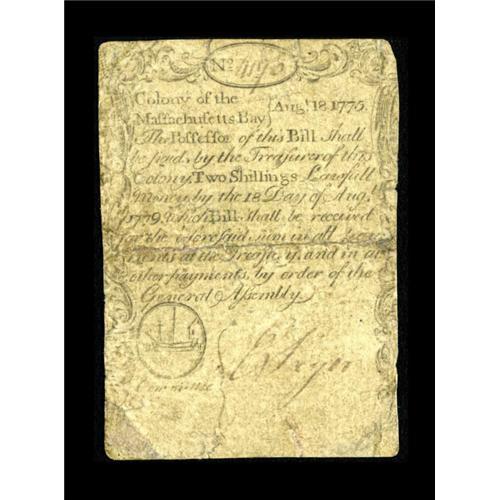 No 4190
Colony of the
Massachusetts Bay } Augt. 18. 1775.
The Possessor of this Bill Shall
be paid by the Treasurer of this
Colony, Two Shillings Lawfull
Money by the 18 Day of Augt.
1779 which Bill Shall be received
for the aforesaid sum in all pay
ments at the Treasury and in all
other payments by order of the
General Assembly.
Committee